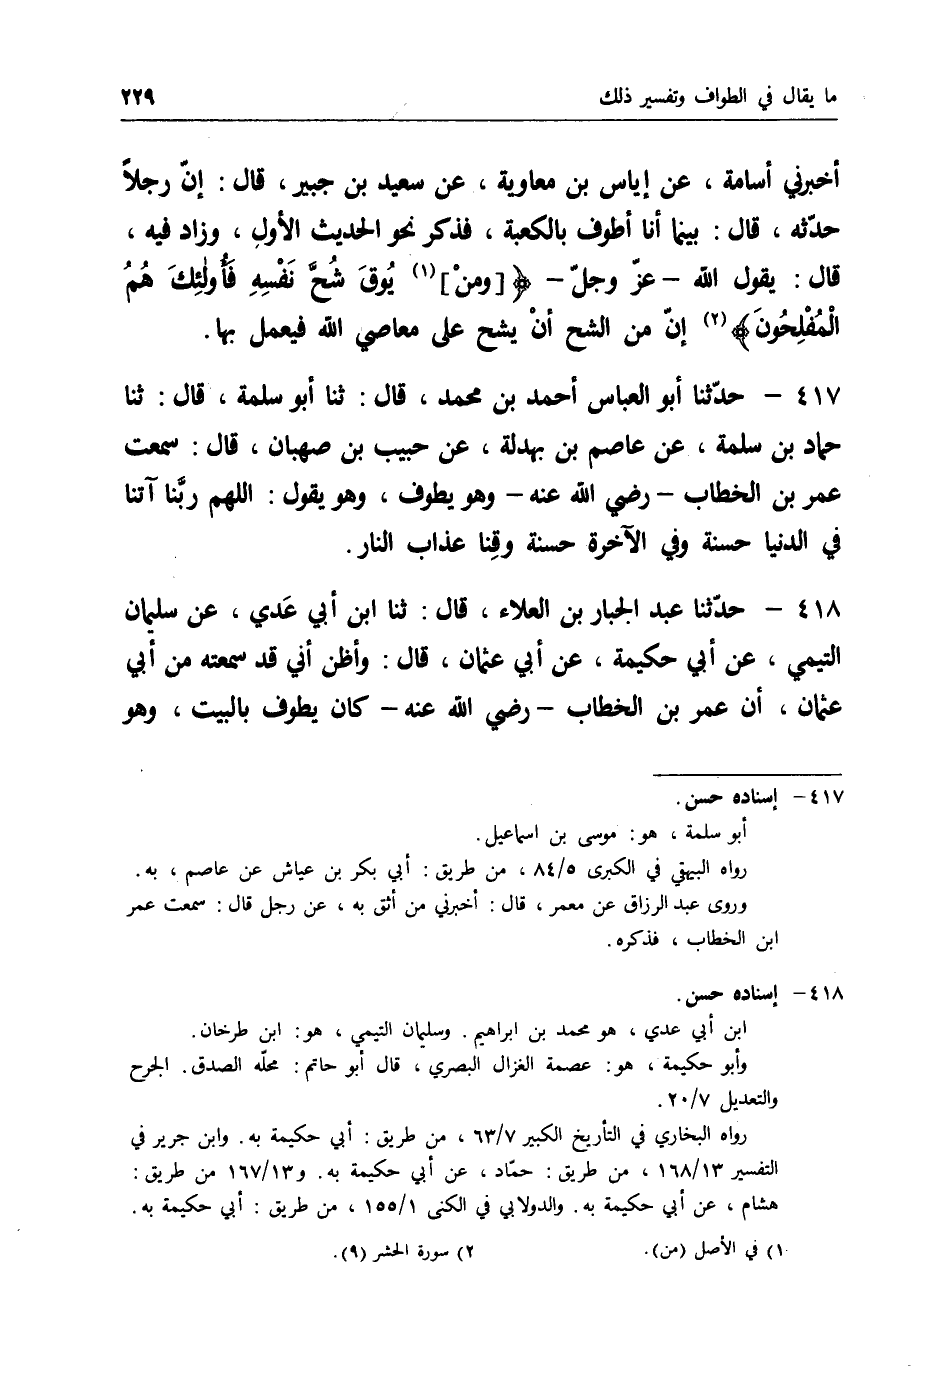 ما يقال في الطواف وتفسير ذلك ٢٢٩
أخبرني أسامة ، عن إياس بن معاوية ، عن سعيد بن جبير ، قال : إنّ رجلاً
حدّثه ، قال : بينما أنا أطوف بالكعبة ، فذكر نحو الحديث الأول ، وزاد فيه ،
قال : يقول الله – عزّ وجلّ – ﴿[ومنْ](١) يُوقَ شُحَّ نَفْسِهِ فَأُولٰئِكَ هُمُ
الْمُفْلِحُونَ﴾(٢) إنّ من الشح أنْ يشح على معاصي الله فيعمل بها.
٤١٧ – حدّثنا أبو العباس أحمد بن محمد ، قال : ثنا أبو سلمة ، قال : ثنا
حماد بن سلمة ، عن عاصم بن بهدلة ، عن حبيب بن صهبان ، قال : سمعت
عمر بن الخطاب – رضي الله عنه – وهو يطوف ، وهو يقول : اللهم ربَّنا آتنا
في الدنيا حسنة وفي الآخرة حسنة وقِنا عذاب النار.
٤١٨ – حدّثنا عبد الجبار بن العلاء ، قال : ثنا ابن أبي عَدي ، عن سليمان
التيمي ، عن أبي حكيمة ، عن أبي عثمان ، قال : وأظن أني قد سمعته من أبي
عثمان ، أن عمر بن الخطاب – رضي الله عنه – كان يطوف بالبيت ، وهو
٤١٧– إسناده حسن.
أبو سلمة ، هو : موسى بن اسماعيل.
رواه البيهقي في الكبرى ٨٤/٥ ، من طريق : أبي بكر بن عياش عن عاصم ، به.
وروى عبد الرزاق عن معمر ، قال : أخبرني من أثق به ، عن رجل قال : سمعت عمر
ابن الخطاب ، فذكره.
٤١٨– إسناده حسن.
ابن أبي عدي ، هو محمد بن ابراهيم . وسليمان التيمي ، هو : ابن طرخان.
وأبو حكيمة ، هو : عصمة الغزال البصري ، قال أبو حاتم : محلّه الصدق. الجرح
والتعديل ٢٠/٧.
رواه البخاري في التأريخ الكبير ٦٣/٧ ، من طريق : أبي حكيمة به. وابن جرير في
التفسير ١٦٨/١٣ ، من طريق : حمّاد ، عن أبي حكيمة به. و١٦٧/١٣ من طريق :
هشام ، عن أبي حكيمة به. والدولابي في الكنى ١٥٥/١ ، من طريق : أبي حكيمة به.
١) في الأصل (من). ٢) سورة الحشر (٩).